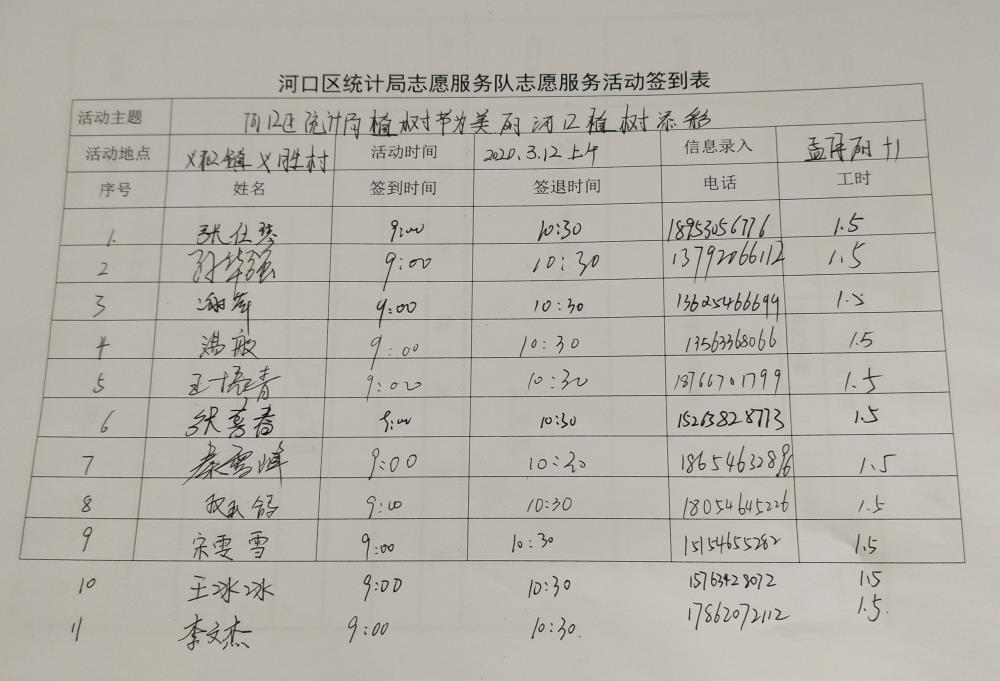 河口区统计局志愿服务队志愿服务活动签到表
活动主题 河口区统计局植树节为美丽河口植树添彩
活动地点 义和镇义胜村 活动时间 2020.3.12上午 信息录入
序号 姓名 签到时间 签退时间 电话 工时
1. 张仕琴 9:00 10:30 18953056776 1.5
2 孙华强 9:00 10:30 13792066112 1.5
3 9:00 10:30 13625466699 1.5
4 温敏 9:00 10:30 13563368066 1.5
5 9:00 10:30 18766701799 1.5
6 张喜春 9:00 10:30 15263828773 1.5
7 秦雪峰 9:00 10:30 1.5
8 9:00 10:30 18054645226 1.5
9 宋雯雪 9:00 10:30 15154655282 1.5
10 王冰冰 9:00 10:30 15763428072 1.5
11 李文杰 9:00 10:30. 17862072112 1.5.